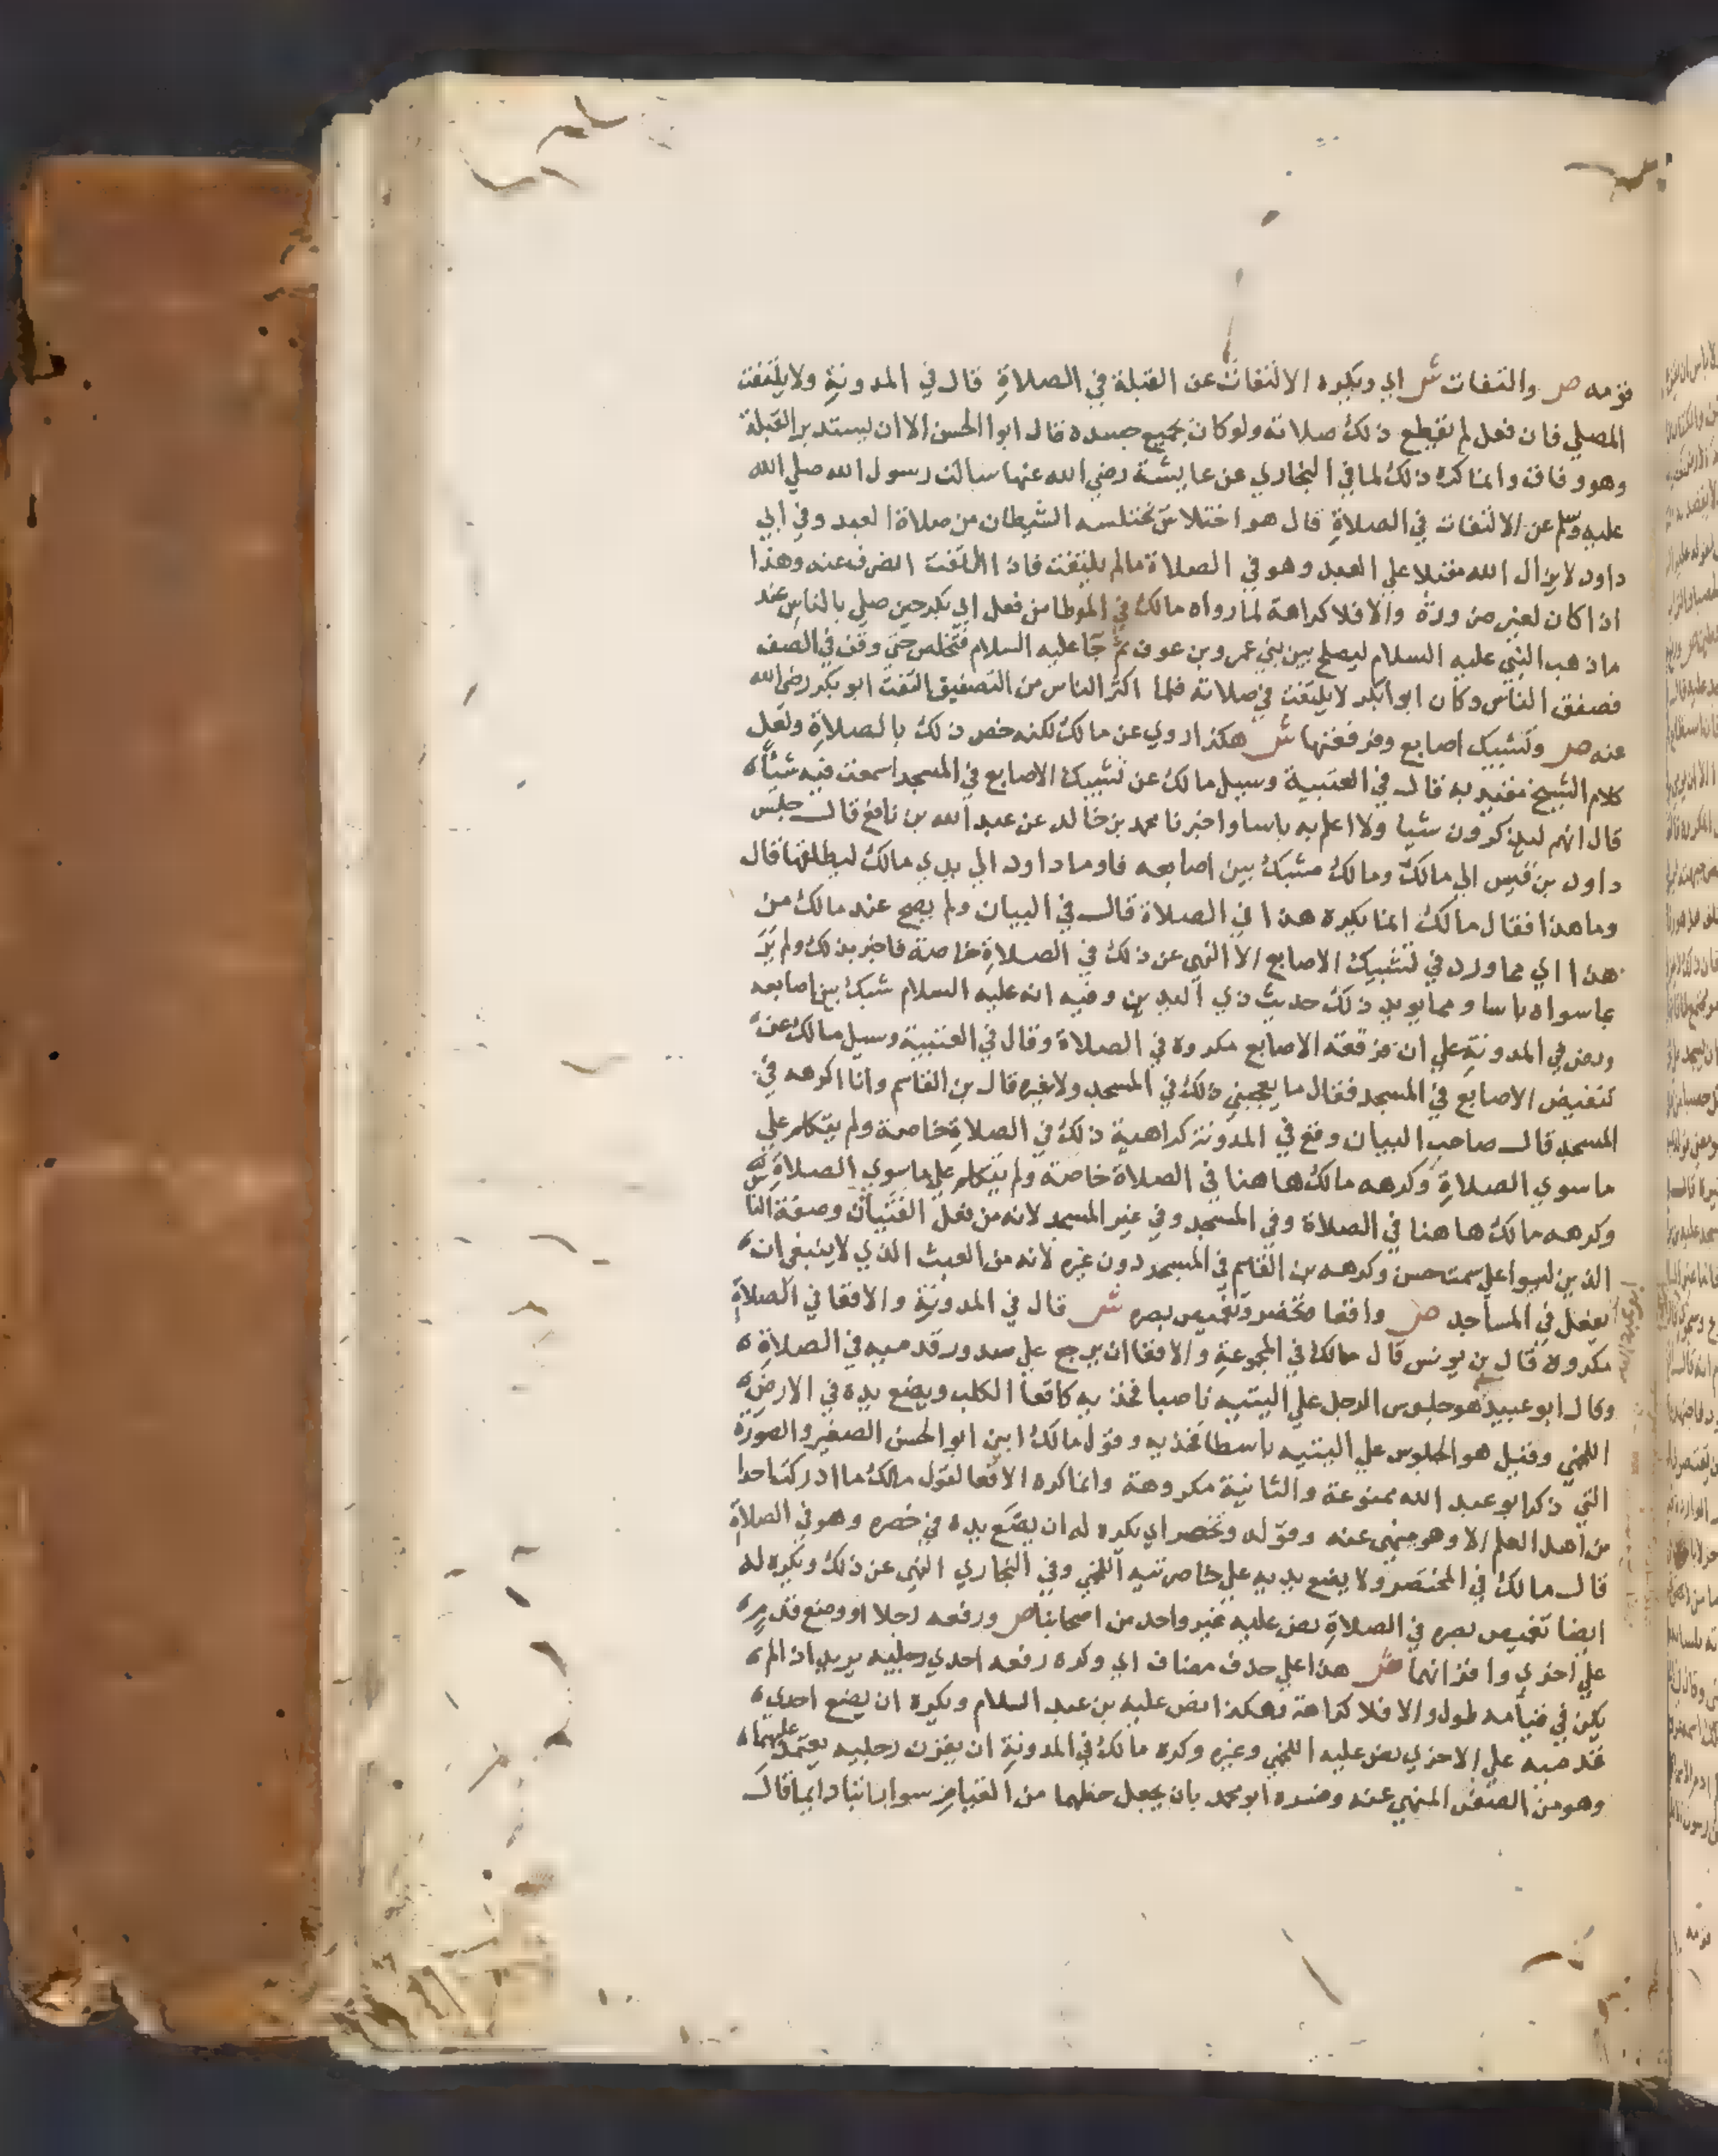 فزمه ص والتفات ش اي ويكره الالتفات عن القبلة في الصلاة قال في المدونة ولا يلتفت
المصلي فان فعل لم يقطع ذلك صلاته ولو كان بجميع جسده قال ابوا الحسن الا ان يستدبر القبلة
وهو وفاق وانما كره ذلك لما في البخاري عن عايشة رضي الله عنها سالت رسول الله صلي الله
عليه وسلم عن الالتفات في الصلاة قال هو اختلاس يختلسه الشيطان من صلاة العبد وفي ابي
داود لا يزال الله مقبلا علي العبد وهو في الصلاة مالم يلتفت فاذا التفت انصرف عنه وهذا
اذا كان لغير ضرورة والا فلا كراهة لما رواه مالك في الموطا من فعل ابي بكر حين صلي بالناس عند
ما ذهب النبي عليه السلام ليصلح بين بني عمر وبن عوف ثم جا عليه السلام فتخلص حتي وقف في الصف
فصفق الناس وكان ابوا بكر لا يلتفت في صلاته فلما اكثر الناس من التصفيق التفت ابو بكر رضي الله
عنه ص وتشبيك اصابع وفرقعتها ش هكذا روي عن مالك لكنه خص ذلك بالصلاة ولعل
كلام الشيخ مقيد به قال في العتبية وسيل مالك عن تشبيك الاصابع في المسجد اسمعت فيه شيأ
قال انهم ليذكرون شيا ولا اعلم به باسا واخبرنا محمد بن خالد عن عبد الله بن نافع قال جلس
داود بن قيس الي مالك ومالك مشبك بين اصابعه فاوما داود الي يدي مالك ليطلقها فقال
وما هذا فقال مالك انما يكره هذا في الصلاة قال في البيان ولم يصح عند مالك من
هذا اي مما ورد في تشبيك الاصابع الا النهي عن ذلك في الصلاة خاصة فاخبر بذلك ولم ير
بما سواه باسا ومما يويد ذلك حديث ذي اليدين وفيه انه عليه السلام شبك بين اصابعه
ونص في المدونة علي ان فرقعة الاصابع مكروه في الصلاة وقال في العتبية وسيل مالك عن
تنقيض الاصابع في المسجد فقال ما يعجبني ذلك في المسجد ولا غيره قال بن القاسم وانا اكرهه في
المسجد قال صاحب البيان وقع في المدونة كراهية ذلك في الصلاة خاصة ولم يتكلم علي
ما سوي الصلاة وكرهه مالك هاهنا في الصلاة خاصة ولم يتكلم علي ما سوي الصلاة
وكرهه مالك هاهنا في الصلاة وفي المسجد وفي غير المسجد لانه من فعل الفتيان وصفة النا
الذين ليسوا علي سمت حسن وكرهه بن القاسم في المسجد دون غيره لانه من العبث الذي لا ينبغي ان
يفعل في المساجد ص واقعا وتخصر وتغميض بصره ش قال في المدونة والاقعا في الصلاة
مكروه قال بن يونس قال مالك في المجموعة والاقعا ان يرجع علي صدور قدميه في الصلاة
وقال ابو عبيد هو جلوس الرجل علي اليتيه ناصبا فخذيه كاقعا الكلب ويضع يده في الارض
اللخمي وقيل هو الجلوس علي اليتيه باسطا فخذيه وقول مالك ابين ابو الحسن الصغير والصورة
التي ذكر ابو عبد الله ممنوعة والثانية مكروهة وانما كره الاقعا لقول مالك ما ادركت احدا
من اهل العلم الا وهو ينهي عنه وقوله وتخصر اي يكره له ان يضع يده في خصره وهو في الصلاة
قال مالك في المختصر ولا يضع يديه علي خاصرتيه اللخمي وفي البخاري النهي عن ذلك ويكره له
ايضا تغميض بصره في الصلاة نص عليه غير واحد من اصحابنا ص ورفعه رجلا او وضع قدم
علي اخري واقرانهما ش هذا علي حذف مضاف اي وكره رفعه احدي رجليه يريد اذا لم
يكن في قيامه طول والا فلا كراهة وهكذا نص عليه بن عبد السلام ويكره ان يضع احدي
قدميه علي الاخري نص عليه اللخمي وغيره وكره مالك في المدونة ان يقرن رجليه يعتمد عليهما
وهو من الصفن المنهي عنه وفسره ابو محمد بان يجعل حظهما من القيام سوا راتبا دايما قال